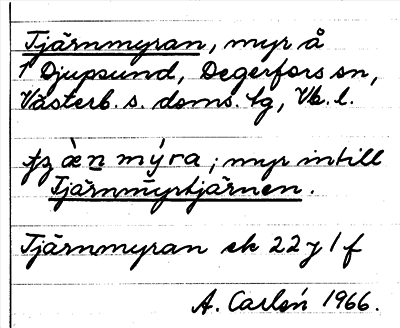 Tjärnmyran, myr å
1 Djupsund, Degerfors sn,
Västerb. s. doms. tg, Vb. l.
mýra; myr intill
Tjärnmyrtjärnen.
Tjärnmyran ek 22 J 1 f
A. Carlén 1966.